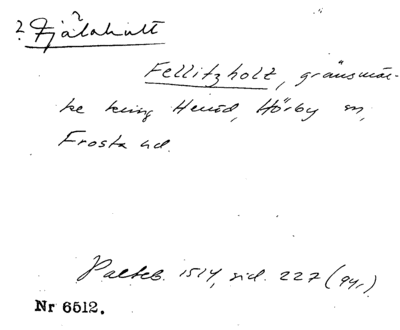 ? Fjälahult
Fellitzholt, gränsmär-
ke kring Hörby sn,
Frosta hd.
Palteb. 1514, sid. 227 (gÿr)
Nr 6512.